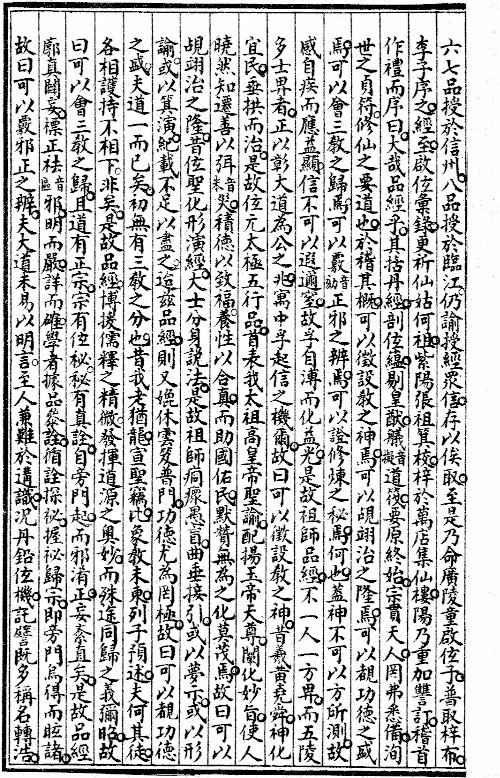 六七品授於信州八品授於臨江仍諭授經眾信存以俟取至是乃命廣陵重啟位子普取梓布
李子序之經至啟位彙錄更祈仙姑何祖紫陽張祖其校梓於萬店集仙樓陽乃重加讐訂稽首
作禮而序曰大哉品經乎其括丹經剖位緼剔皇猷艤音擬道筏要原終始宗貫天人罔弗悉備洵
世之貞符修仙之要道也於稽其概可以徵設教之神焉可以覘翊治之隆焉可以覩功德之盛
焉可以會三教之歸焉可以覈音劾正邪之辨焉可以證修煉之秘焉何也蓋神不可以方所測故
感自疾而應益顯信不可以遐邇窒故孚自溥而化益光是故祖師品經不一人一方畀而五陵
多士畀者正以彰大道為公之兆寓中孚起信之機爾故曰可以徵設教之神昔羲黃堯舜神化
宜民垂拱而治是故位元太極五行品首表我太祖高皇帝聖諭配揚玉帝天尊闡化妙旨使人
曉然知遷善以弭音米災積德以致福養性以合真而助國佑民默贊無為之化莫茂焉故曰可以
覘翊治之隆昔位聖化形演經大士分身說法是故祖師痌瘝愚盲曲垂接引或以夢示或以形
諭或以箕演紀載不足以盡之迨茲品經則又娩休雲笈普門功德尤為罔極故曰可以覩功德
之盛夫道一而已矣初無有三教之分也昔我老猶龍宣聖竊比象教未東列子預述夫何其徒
各相護持不相下非矣是故品經博援儒釋之精微發揮道源之奧妙而殊途同歸之義彌昭故
曰可以會三教之歸且道有正宗宗有位秘秘有真詮自旁門起而邪淆正妄奪真矣是故品經
廓真闢妄標正祛音區邪明而嚴詳而確學者據品參詮循詮探秘握秘歸宗即旁門烏得而眩諸
故曰可以覈邪正之辨夫大道未易以明言至人兼難於遘識况丹鉛位機託譬既多稱名轉浩